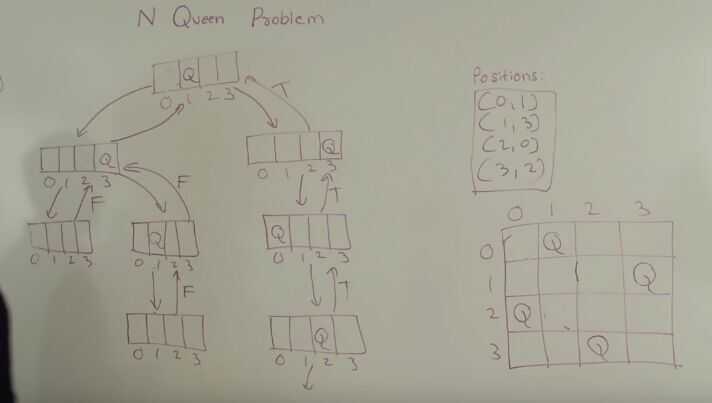 N Queen Problem
Q
0 1 2 3
T
Q
0 1 2 3
F
0 1 2 3
F
Q
0 1 2 3
F
0 1 2 3
Q
0 1 2 3
T
Q
0 1 2 3
T
Q
0 1 2 3
Positions:
(0,1)
(1,3)
(2,0)
(3,2)
0 1 2 3
0 Q
1 Q
2 Q
3 Q